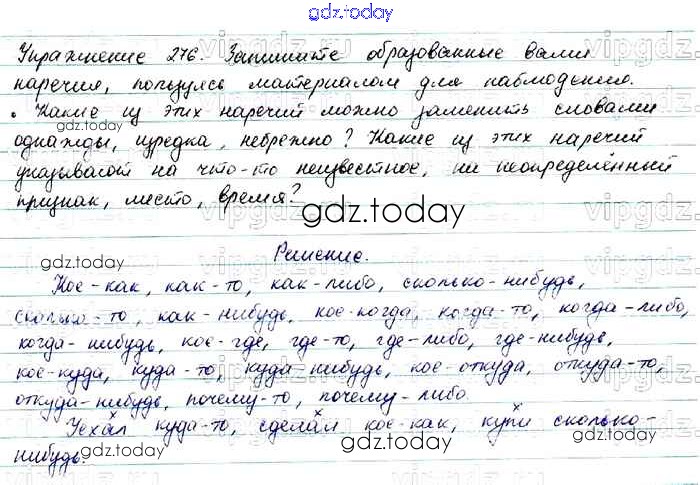 gdz.today
Упражнение 276. Запишите образованные вами
наречия, пользуясь материалом для наблюдения.
• Какие из этих наречий можно заменить словами
однажды, изредка, небрежно? Какие из этих наречий
указывают на что-то неизвестное, на неопределённый
признак, место, время?
gdz.today
gdz.today
Решение.
Кое-как, как-то, как-либо, сколько-нибудь,
сколько-то, как-нибудь, кое-когда, когда-то, когда-либо,
когда-нибудь, кое-где, где-то, где-либо, где-нибудь,
кое-куда, куда-то, куда-нибудь, кое-откуда, откуда-то,
откуда-нибудь, почему-то, почему-либо.
gdz.today
Уехал куда-то, сделал кое-как, купи сколько-
нибудь.
gdz.today
gdz.today